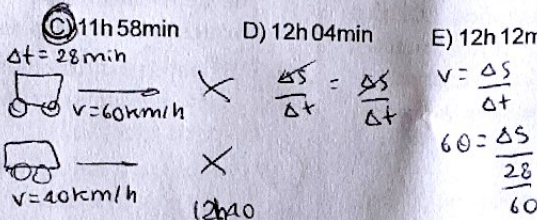 C) 11h 58min D) 12h 04min E) 12h 12m
Δt = 28min
v=60km/h
ΔS/Δt = ΔS/Δt
v = ΔS/Δt
60 = ΔS/28/60
v=40km/h
12h40